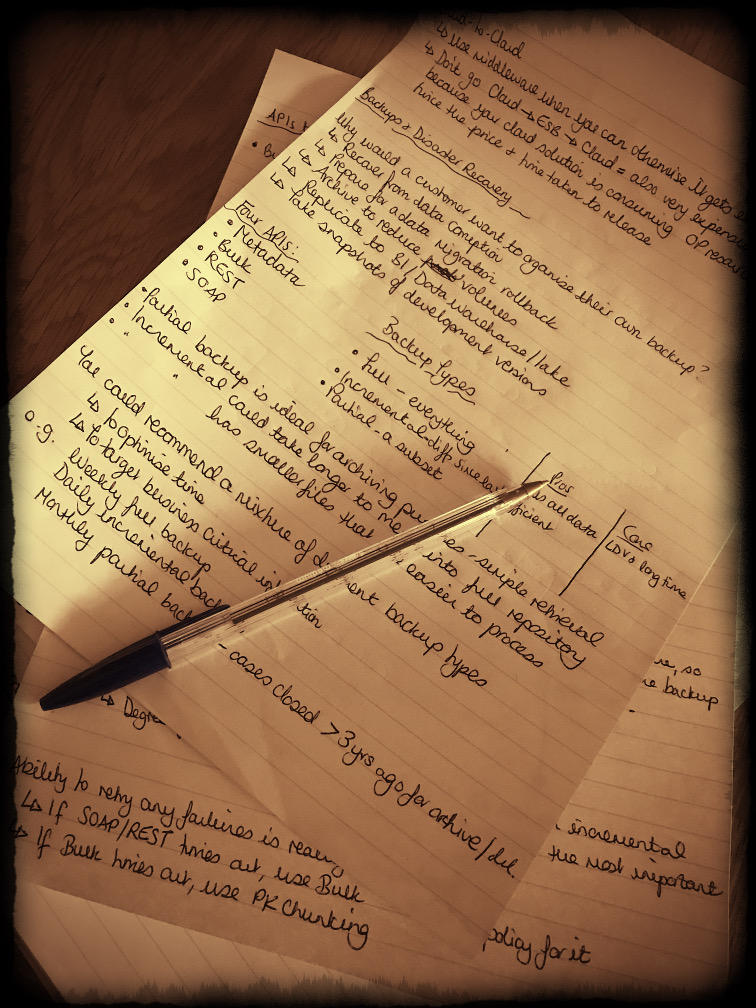 -to-Cloud
↳ Use middleware when you can otherwise it gets
↳ Don't go Cloud → ESB → Cloud = also very expensive
because your cloud solution is consuming OP
twice the price & time taken to release
Backups & Disaster Recovery
Why would a customer want to organise their own backup?
↳ Recover from data corruption
↳ Prepare for a data migration rollback
↳ Archive to reduce volumes
↳ Replicate to BI/Data warehouse/lake
↳ Take snapshots of development versions
APIs
Four APIs:
• Metadata
• Bulk
• REST
• SOAP
Backup Types
• Full - everything
• Incremental - diff since
• Partial - a subset
Pros
all data
Cons
LDVs long time
• Partial backup is ideal for archiving - simple retrieval
• Incremental could take longer to into full repository
• " " has smaller files that easier to process
You could recommend a mixture of backup types
↳ to optimise time
↳ To target business critical
e.g. Weekly full backup
Daily incremental
Monthly partial - cases closed > 3 yrs ago for archive/del.
so
backup
↳
Ability to retry any failures is
↳ If SOAP/REST times out, use Bulk
↳ If Bulk times out, use PK Chunking
incremental
the most important
policy for it